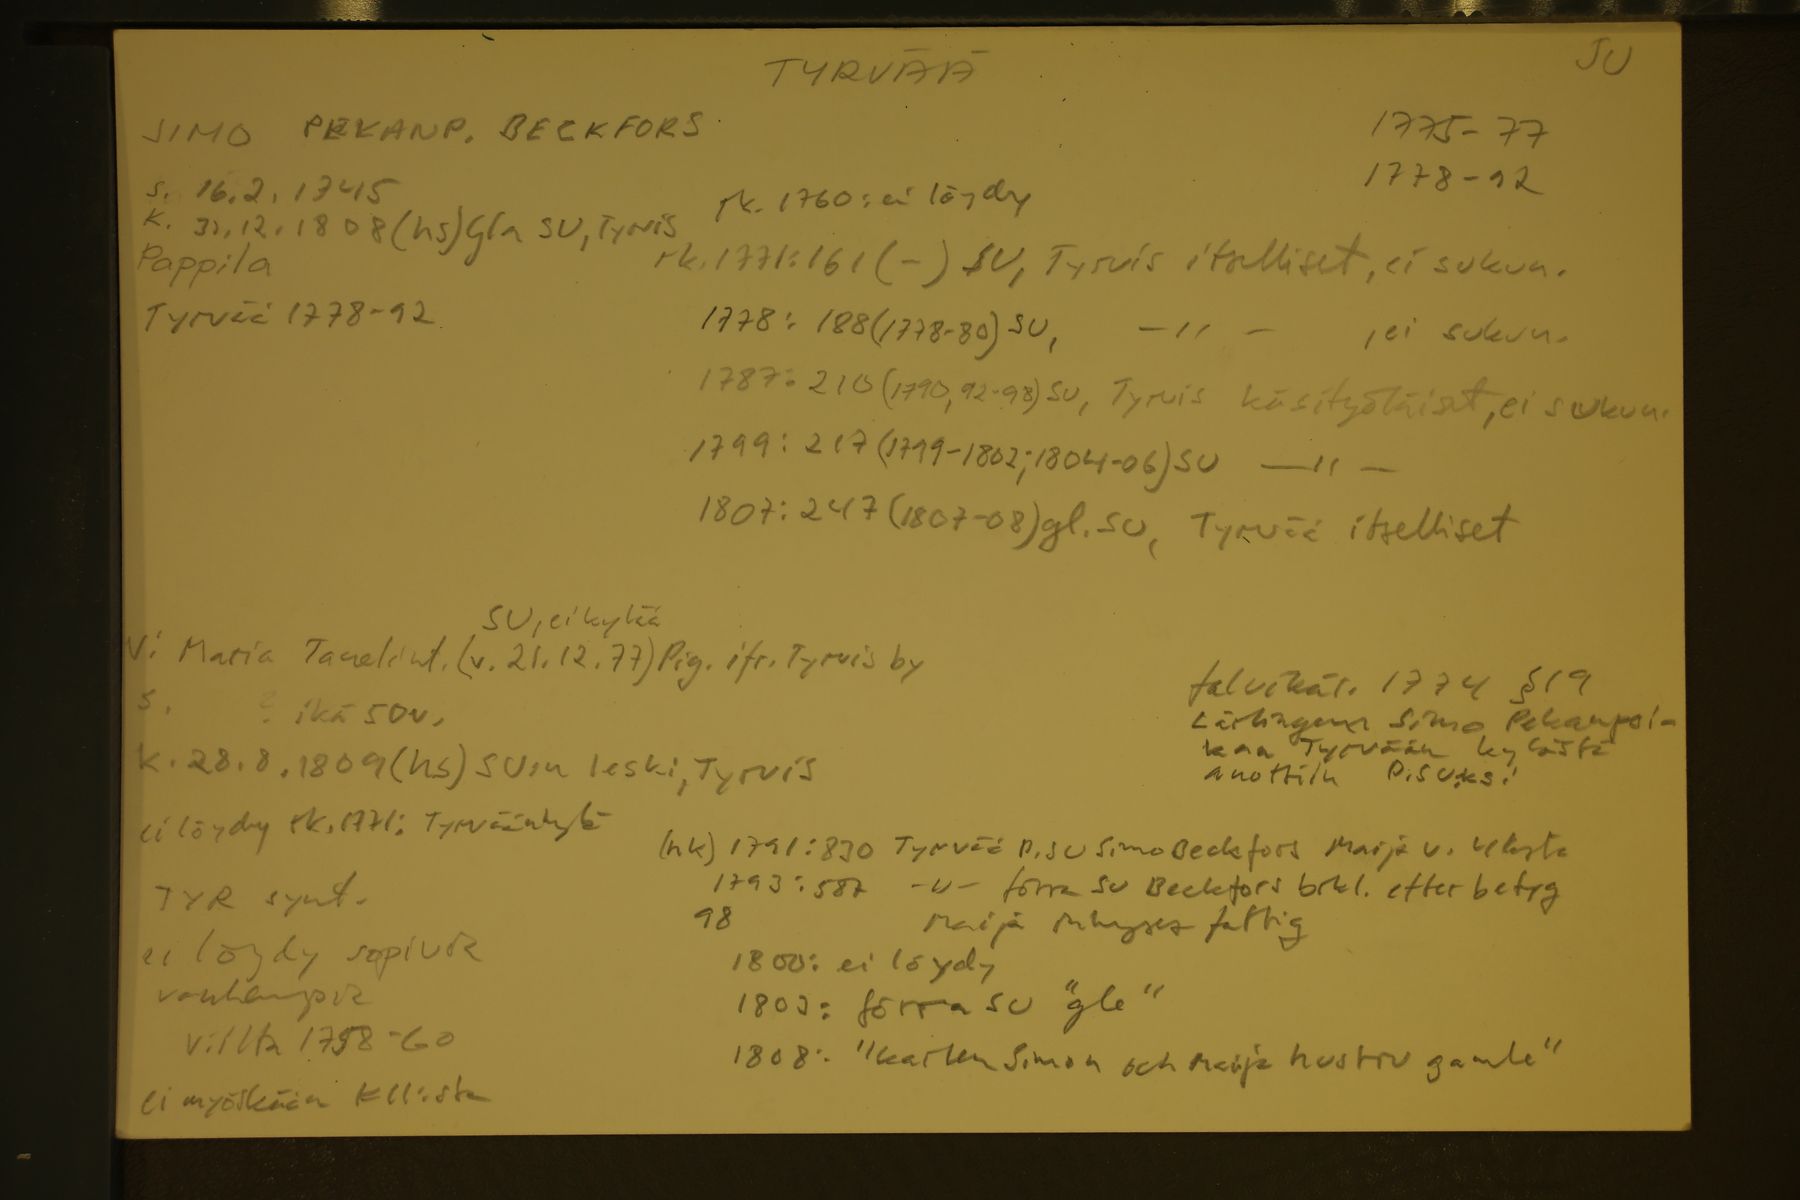 TYRVÄÄ
SU
SIMO PEKANP. BECKFORS
1775-77
1778-92
s. 16.2.1745
k. 31.12.1808 (hs) gla SU, Tyrvis
Pappila
Tyrvää 1778-92
rk. 1760: ei löydy
rk. 1771: 161 (-) SU, Tyrvis itselliset, ei sukun.
1778: 188 (1778-80) SU, -"- , ei sukun.
1787: 210 (1790, 92-98) SU, Tyrvis käsityöläiset, ei sukun.
1799: 217 (1799-1802; 1804-06) SU -"-
1807: 247 (1807-08) gl. SU, Tyrvää itselliset
SU, ei kylää
V: Maria Tanelint. (v. 21.12.77) Pig. ifr. Tyrvis by
s. ? ikä 50v.
k. 28.8.1809 (hs) SU:n leski, Tyrvis
ei löydy rk. 1771: Tyrväänkylä
TYR synt.
ei löydy sopivia
vanhempia
v:lta 1758-60
ei myöskään K11:sta
talvikär. 1774 §19
Simo Pekanpoi-
kaa Tyrvään kylästä
anottiin P.SU:ksi
(hk) 1791: 830 Tyrvää P.SU Simo Beckfors Maija v.
1793: 587 -"- förra SU Beckfors brkl. efter betyg
98 Maija fattig
1800: ei löydy
1803: förra SU "gle"
1808: "karlen Simon och Maija hustru gamle"